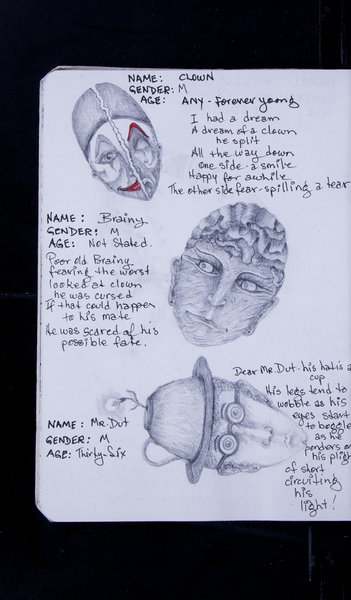 NAME: CLOWN
GENDER: M
AGE: ANY - Forever young
I had a dream
A dream of a clown
he split
All the way down
One side - a smile
Happy for awhile
The other side fear - spilling a tear
NAME: Brainy
GENDER: M
AGE: Not Stated.
Poor old Brainy
fearing the worst
looked at clown
he was cursed
If that could happen
to his mate
He was scared of his
possible fate.
Dear Mr. Dut - his hat is a
cup
His legs tend to
wobble as his
eyes start
to boggle
as he
ponders on
his plight
of short
circuiting
his
light!
NAME: Mr. Dut
GENDER: M
AGE: Thirty-Six